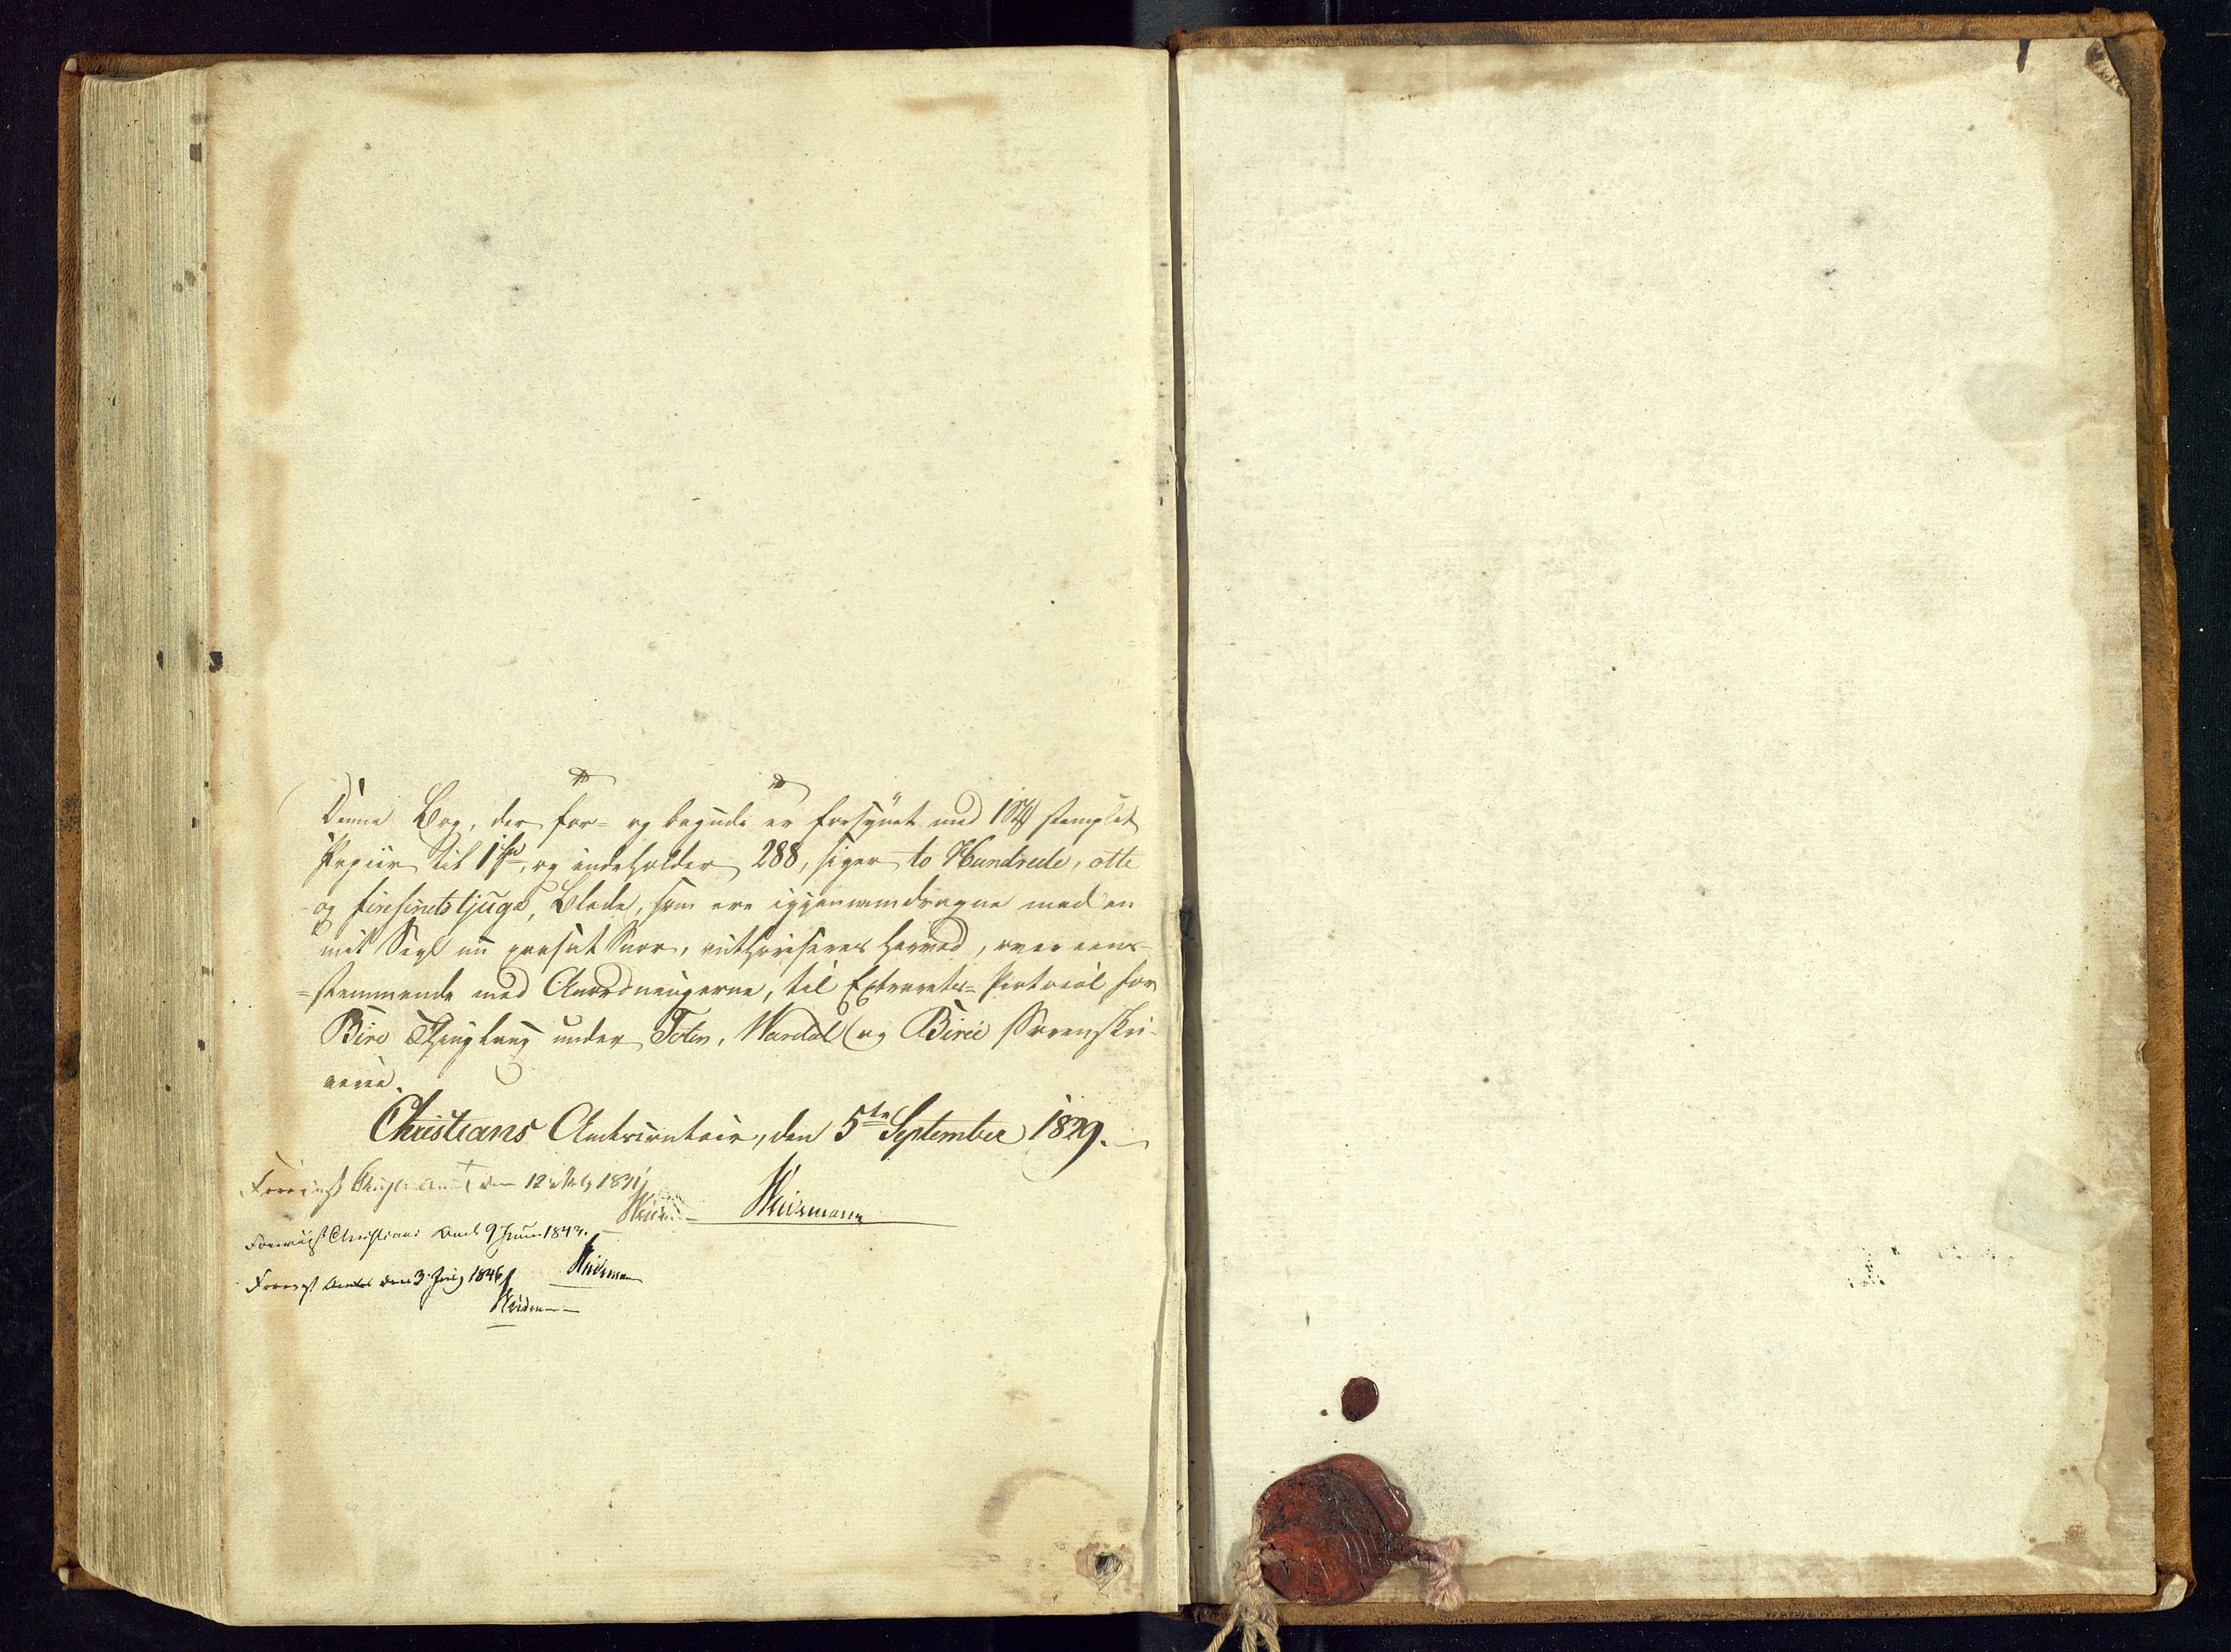 Denne Bog, der for- og bagudi er forsynet med stemplet
Papiir til 1 og indeholder 288, siger to Hundrede, otte
og firesindstjuge, Blade, som ere igjennemdragne med en
mit Segl Snor, authoriseres herved, overeens-
=stemmende med Anordningerne, til Extrarets-Protocol for
Birie Thinglaug under Toten, Wardal og Birie Sorenskri-
verie.
Christians Amtscontoir, den 5te September 1829.
den 12 1831
Weismann
Foreviist Christians Amt 9 Juni 1843.
Weismann
Foreviist Amtet den 3 July 1846